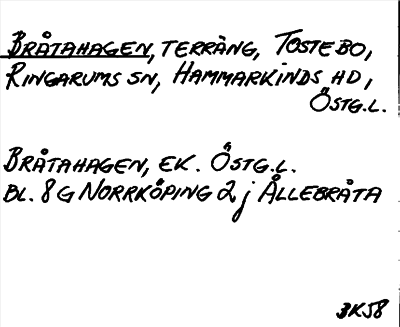 BRÅTAHAGEN, TERRÄNG, TOSTEBO,
RINGARUMS SN, HAMMARKINDS HD,
ÖSTG.L.
BRÅTAHAGEN, EK. ÖSTG.L.
BL. 8G NORRKÖPING 2j ÅLLEBRÅTA
BK58